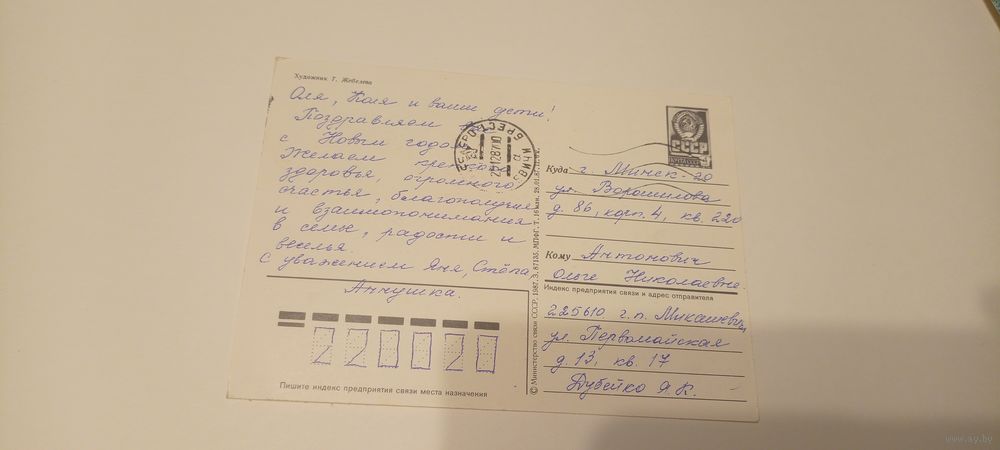 Художник Г. Жебелева
Оля, Коля и ваши дети!
Поздравляем
с Новым годом
Желаем крепкого
здоровья, огромного
счастья, благополучия
и взаимопонимания
в семье, радости и
веселья.
С уважением Яня, Стёпа,
Аннушка.
220020
Пишите индекс предприятия связи места назначения
© Министерство связи СССР. 1987. З. 87135. МПФГ. Т. 16 млн. 28.01.87.
СССР
Куда г. Минск-20
ул. Ворошилова
д. 86, корп. 4, кв. 220
Кому Антонович
Ольге Николаевне.
Индекс предприятия связи и адрес отправителя
225610. г.п. Микашевичи
ул. Первомайская
д. 13, кв. 17
Дубейко Я. К.
www.ay.by